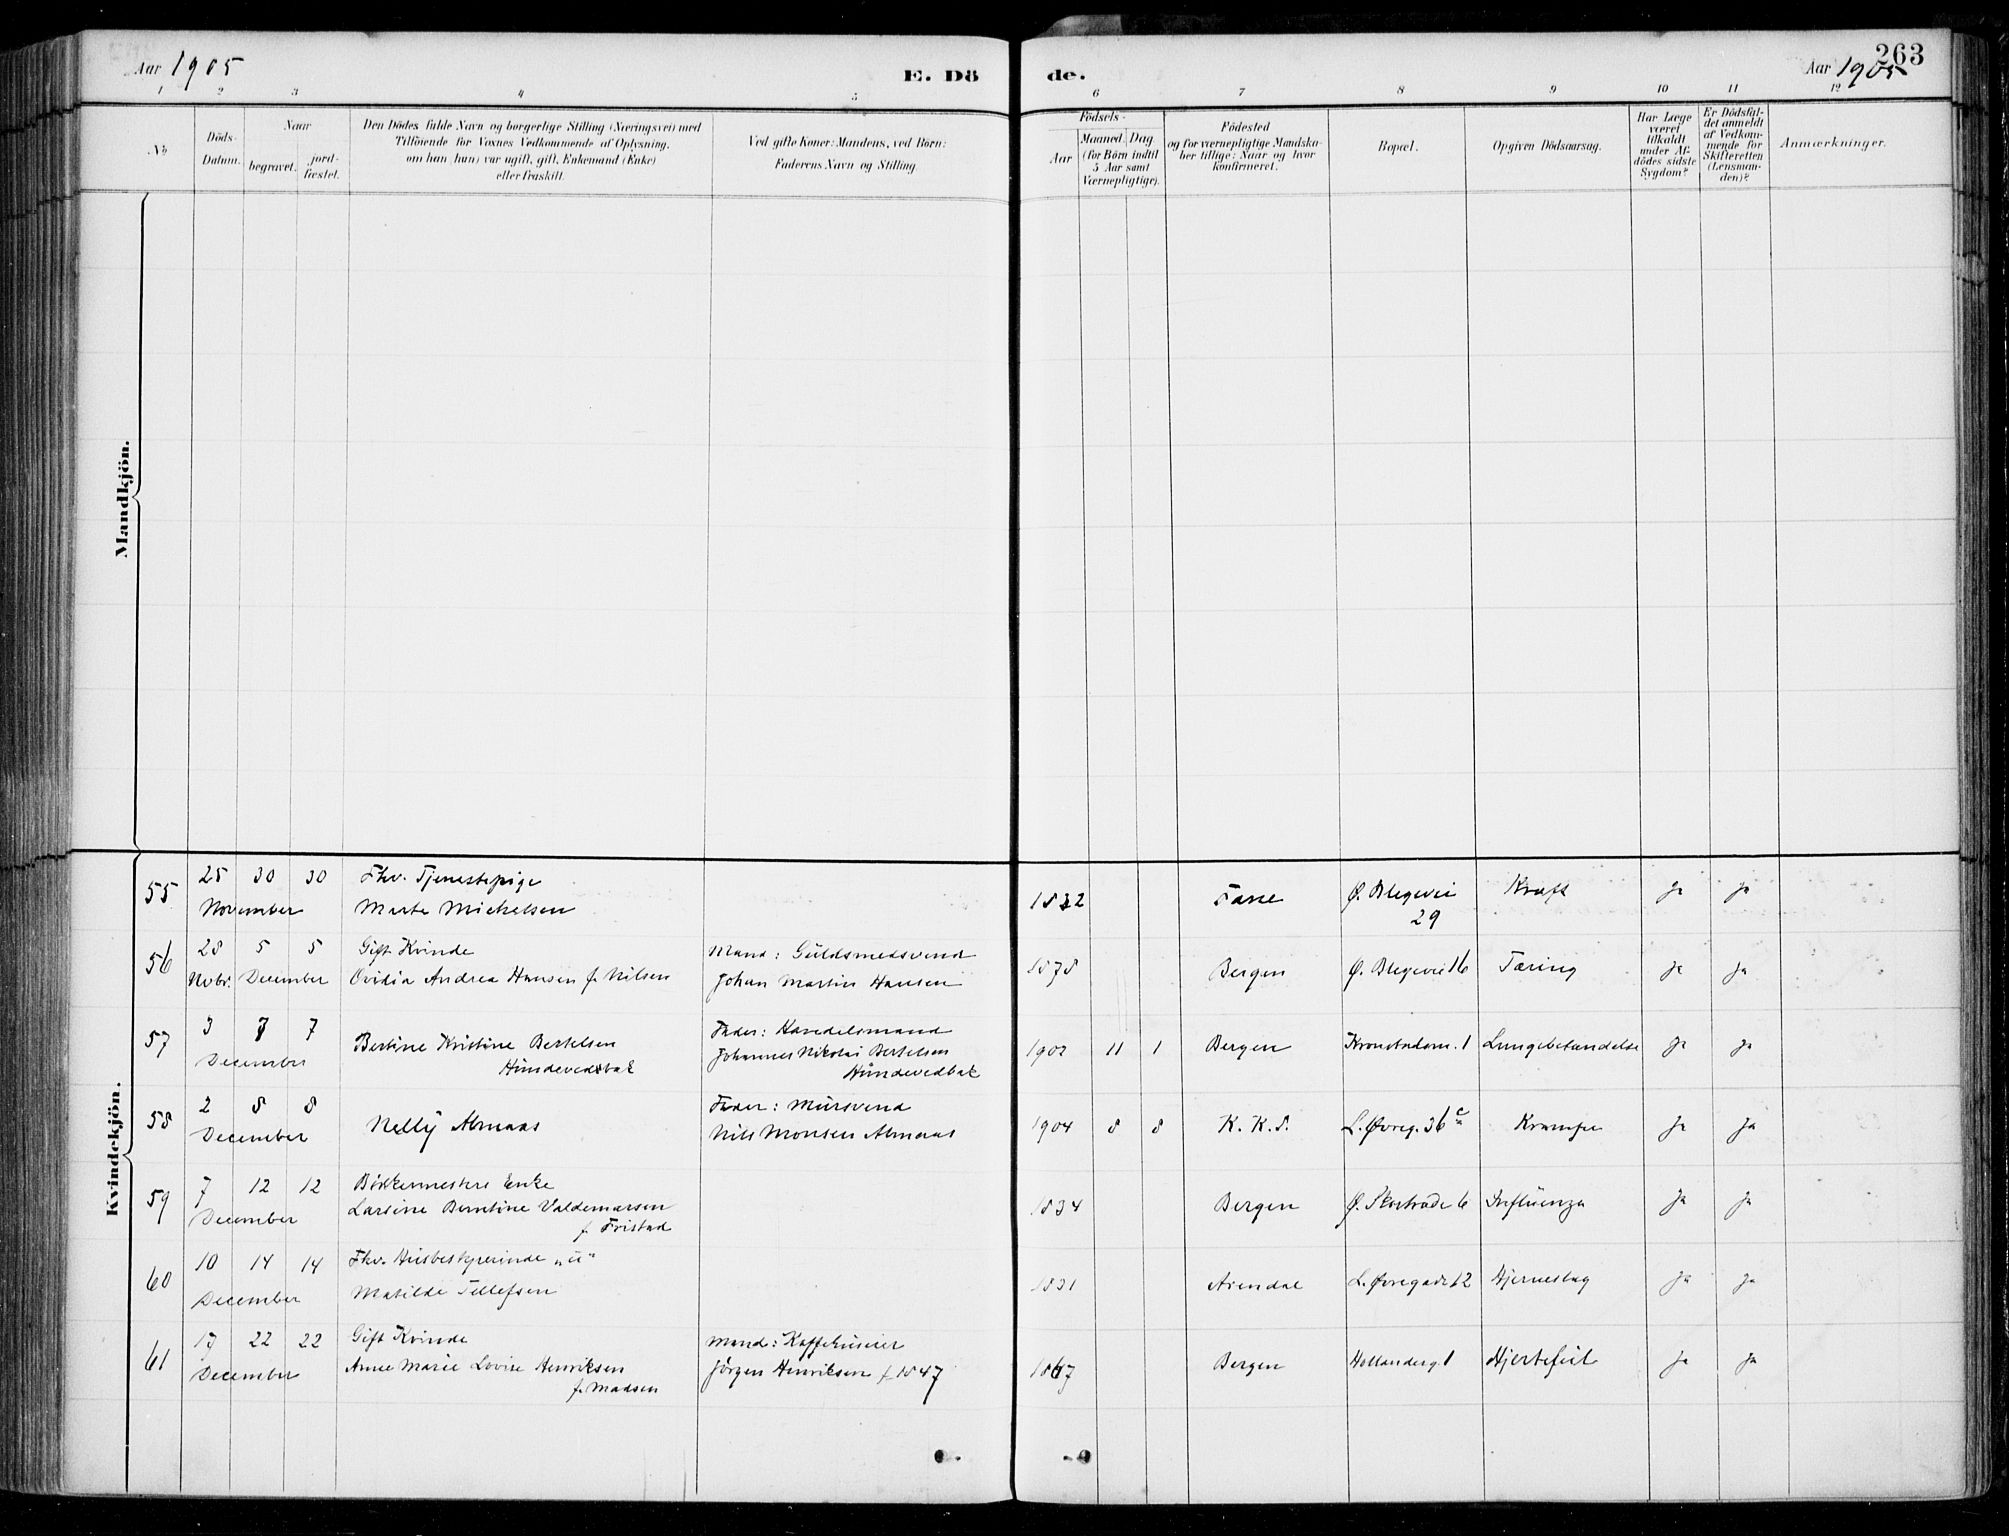 Aar 1905
E. Dö
de.
Aar 1905
263
1 2 3 4 5 6 7 8 9 10 11 12
No
Döds-
Datum.
Naar
begravet.
jord-
fæstet.
Den Dödes fulde Navn og borgerlige Stilling (Næringsvei) med
Tilföiende for Voxnes Vedkommende af Oplysning,
om han (hun) var ugift, gift, Enkemand (Enke)
eller fraskilt.
Ved gifte Koner: Mandens, ved Börn:
Faderens Navn og Stilling.
Födsels-
Aar
Maaned. Dag
(for Börn indtil
5 Aar samt
Værnepligtige).
Födested
og for værnepligtige Mandska-
ber tillige: Naar og hvor
konfirmeret.
Bopæl.
Opgiven Dödsaarsag.
Har Læge
været
tilkaldt
under Af-
dödes sidste
Sygdom?
Er Dödsfal-
det anmeldt
af Vedkom-
mende for
Skifteretten
(Lensman-
den)?
Anmærkninger.
Mandkjön.
Kvindekjön.
55 25 30 30 Fhv. Tjenestepige
November Marta Michelsen 1832 Fane Ø. Blegevei 29 Kræft Ja Ja
56 28 5 5 Gift Kvinde Mand: Guldsmedsvend
Novbr. December Ovidia Andrea Hansen f. Nilsen Johan Martin Hansen 1878 Bergen Ø. Blegevei 16 Tæring Ja Ja
57 3 7 7 Fader: Handelsmand
December Bertine Kristine Bertelsen Johannes Nikolai Bertelsen 1902 11 1 Bergen 1 Lungebetændelse Ja Ja
Hundevedsbak Hundevedbak
58 2 8 8 Fader: Mursvend
December Nelly Almaas Nils Monsen Almaas 1904 8 8 K. K. S. L. Øvreg. 36 c Krampe Ja Ja
59 7 12 12 Bökkermesters Enke
December Larsine Berntine Valdemarsen 1834 Bergen Ø. Skostræde 6 Influenza Ja Ja
f. Fristad
60 10 14 14 Fhv. Husbestyrerinde „u“
December Matilde Tellefsen 1831 Arendal L. Øvregade 12 Hjerneslag Ja Ja
61 17 22 22 Gift Kvinde Mand: Kaffehuseier
December Anne Marie Lovise Henriksen Jörgen Henriksen f. 1847 1867 Bergen Hollanderg. 1 Hjertefeil Ja Ja
f. Madsen